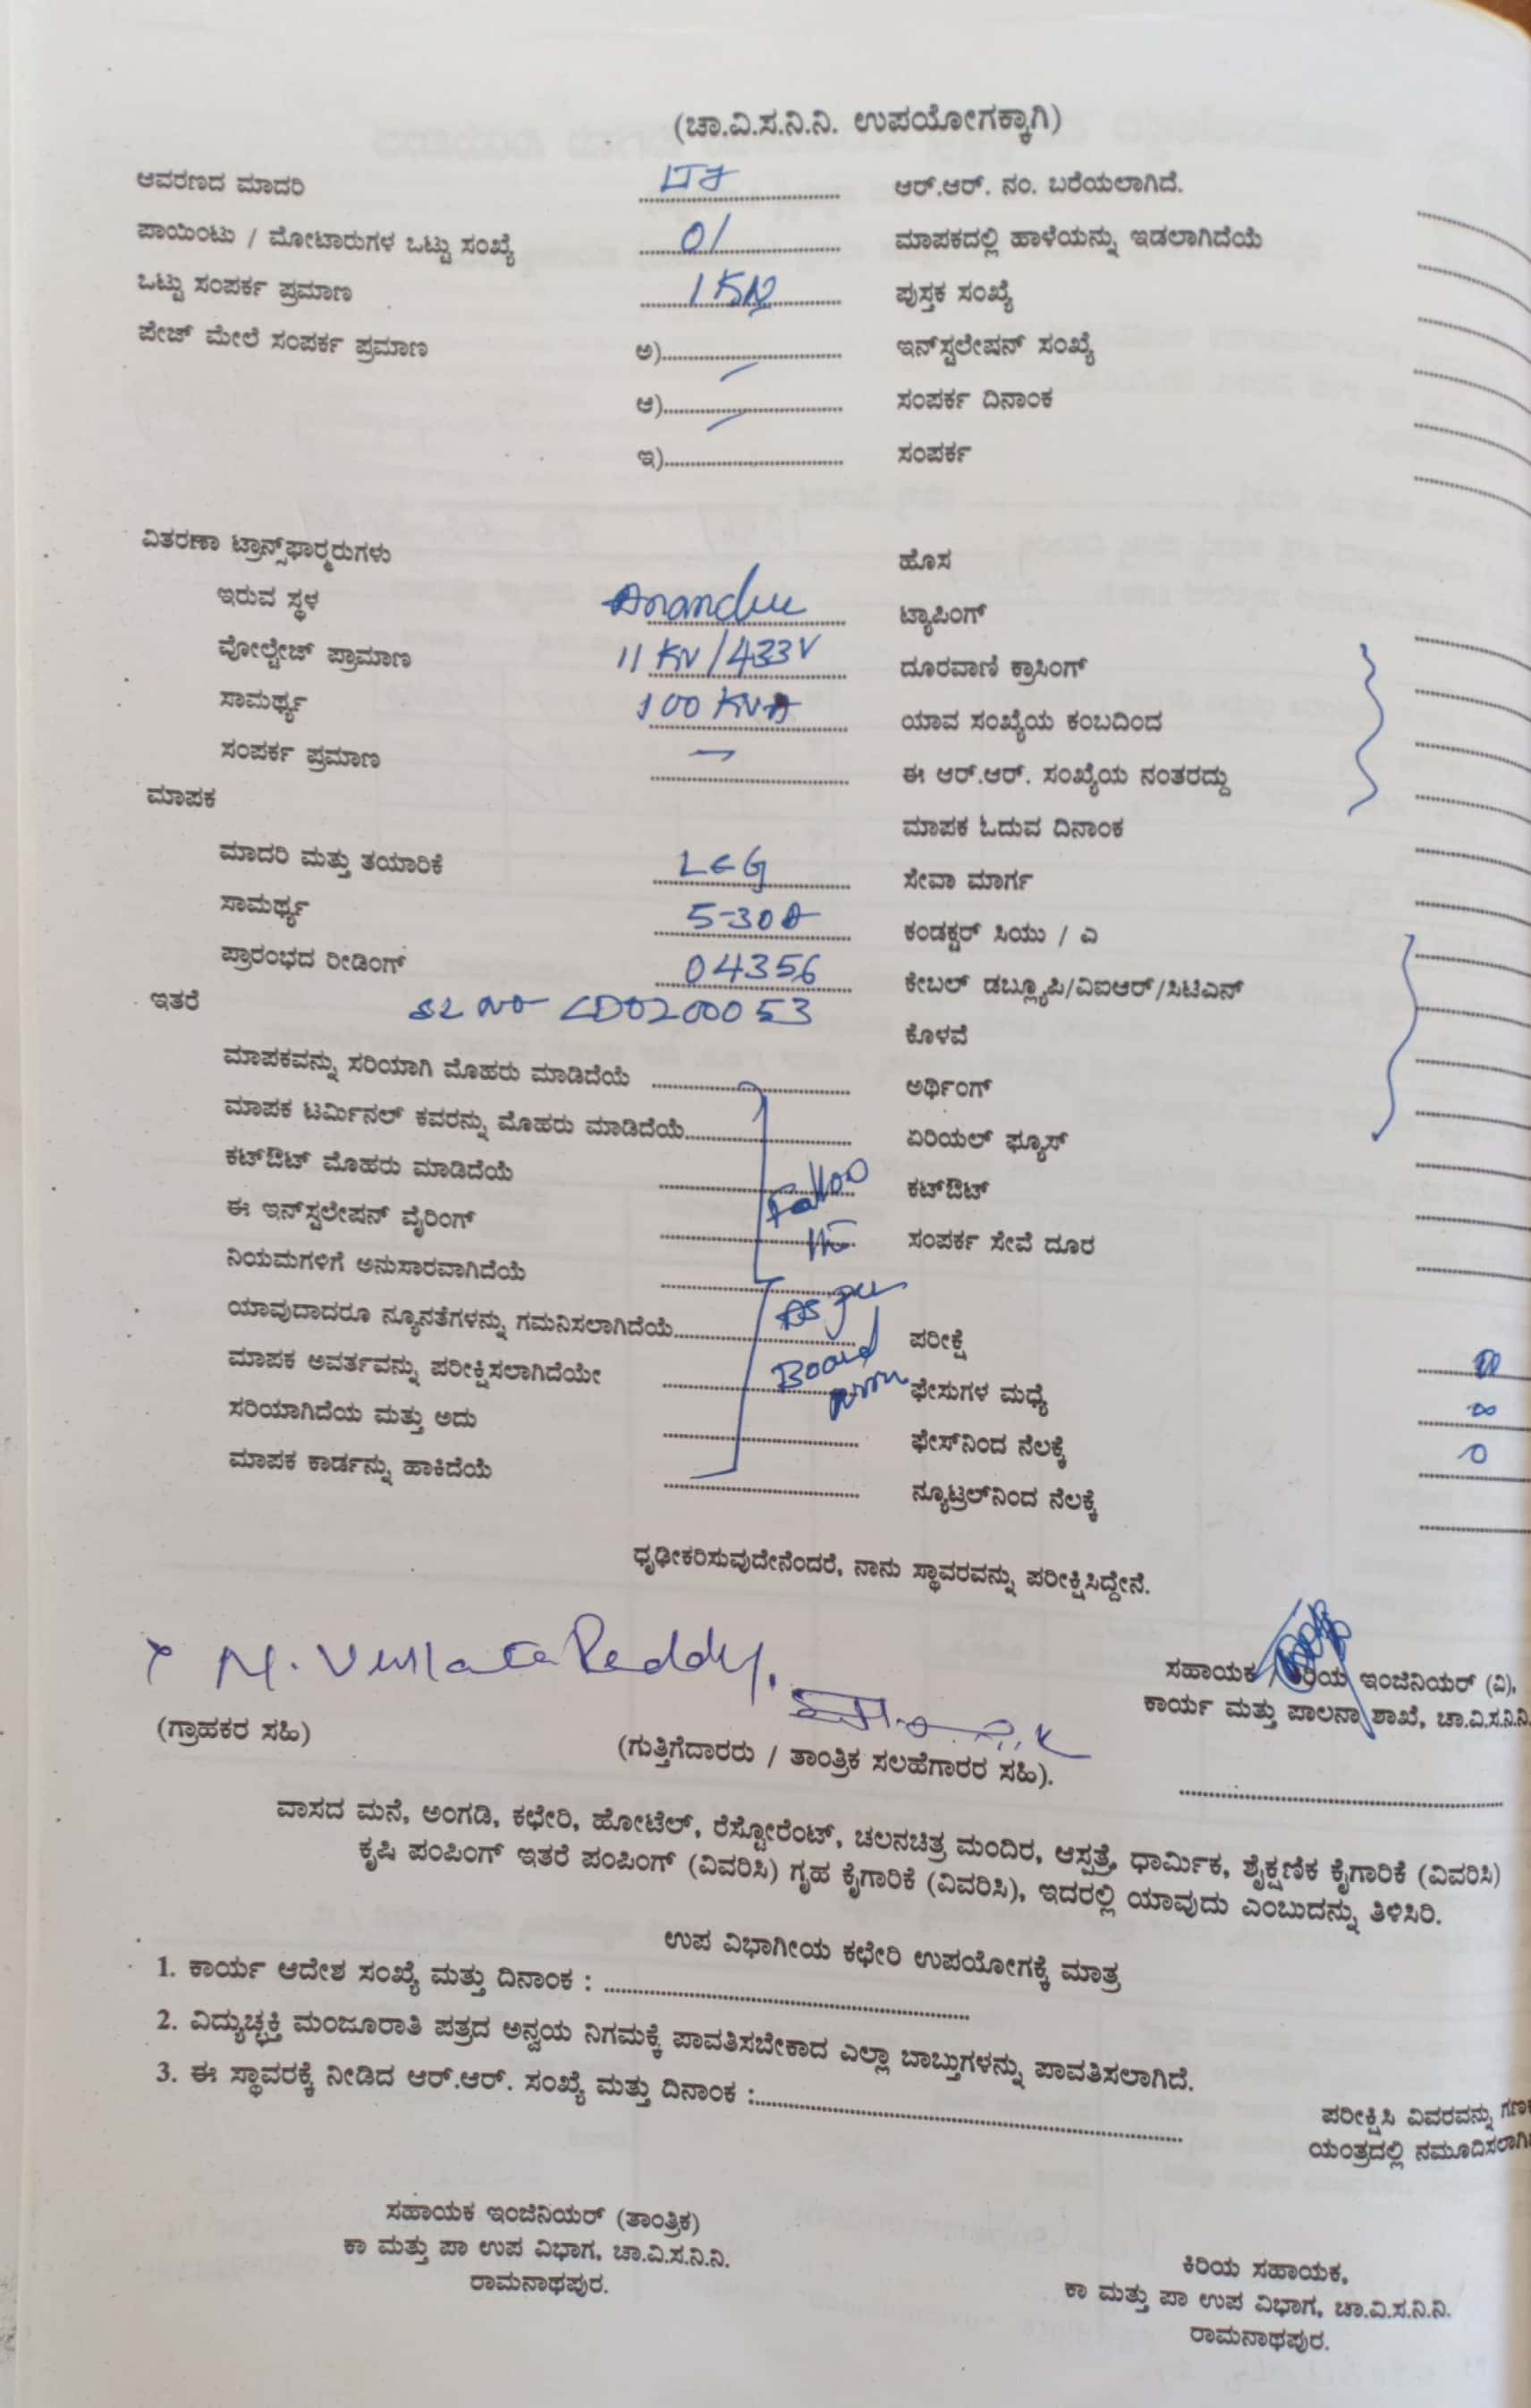 (ಚಾ.ವಿ.ಸ.ನಿ.ನಿ. ಉಪಯೋಗಕ್ಕಾಗಿ)
ಆವರಣದ ಮಾದರಿ ಆರ್.ಆರ್. ನಂ. ಬರೆಯಲಾಗಿದೆ.
ಪಾಯಿಂಟು / ಮೋಟಾರುಗಳ ಒಟ್ಟು ಸಂಖ್ಯೆ 01 ಮಾಪಕದಲ್ಲಿ ಹಾಳೆಯನ್ನು ಇಡಲಾಗಿದೆಯೆ
ಒಟ್ಟು ಸಂಪರ್ಕ ಪ್ರಮಾಣ 1 KW ಪುಸ್ತಕ ಸಂಖ್ಯೆ
ಪೇಜ್ ಮೇಲೆ ಸಂಪರ್ಕ ಪ್ರಮಾಣ ಅ) ಇನ್‌ಸ್ಟಲೇಷನ್ ಸಂಖ್ಯೆ
ಆ) ಸಂಪರ್ಕ ದಿನಾಂಕ
ಇ) ಸಂಪರ್ಕ
ವಿತರಣಾ ಟ್ರಾನ್ಸ್‌ಫಾರ್‍ಮರುಗಳು ಹೊಸ
ಇರುವ ಸ್ಥಳ ಟ್ಯಾಪಿಂಗ್
ವೋಲ್ಟೇಜ್ ಪ್ರಾಮಾಣ 11 KV/433V ದೂರವಾಣಿ ಕ್ರಾಸಿಂಗ್
ಸಾಮರ್ಥ್ಯ 100 KVA ಯಾವ ಸಂಖ್ಯೆಯ ಕಂಬದಿಂದ
ಸಂಪರ್ಕ ಪ್ರಮಾಣ — ಈ ಆರ್.ಆರ್. ಸಂಖ್ಯೆಯ ನಂತರದ್ದು
ಮಾಪಕ ಮಾಪಕ ಓದುವ ದಿನಾಂಕ
ಮಾದರಿ ಮತ್ತು ತಯಾರಿಕೆ L&G ಸೇವಾ ಮಾರ್ಗ
ಸಾಮರ್ಥ್ಯ 5-30A ಕಂಡಕ್ಟರ್ ಸಿಯು / ಎ
ಪ್ರಾರಂಭದ ರೀಡಿಂಗ್ 04356 ಕೇಬಲ್ ಡಬ್ಲ್ಯೂಪಿ/ವಿಐಆರ್/ಸಿಟಿಎನ್
ಇತರೆ SL NO LD0200053 ಕೊಳವೆ
ಮಾಪಕವನ್ನು ಸರಿಯಾಗಿ ಮೊಹರು ಮಾಡಿದೆಯೆ ಅರ್ಥಿಂಗ್
ಮಾಪಕ ಟರ್ಮಿನಲ್ ಕವರನ್ನು ಮೊಹರು ಮಾಡಿದೆಯೆ ಏರಿಯಲ್ ಫ್ಯೂಸ್
ಕಟ್‌ಔಟ್ ಮೊಹರು ಮಾಡಿದೆಯೆ ಕಟ್‌ಔಟ್
ಈ ಇನ್‌ಸ್ಟಲೇಷನ್ ವೈರಿಂಗ್ ಸಂಪರ್ಕ ಸೇವೆ ದೂರ
ನಿಯಮಗಳಿಗೆ ಅನುಸಾರವಾಗಿದೆಯೆ
ಯಾವುದಾದರೂ ನ್ಯೂನತೆಗಳನ್ನು ಗಮನಿಸಲಾಗಿದೆಯೆ As per ಪರೀಕ್ಷೆ
ಮಾಪಕ ಅವರ್ತವನ್ನು ಪರೀಕ್ಷಿಸಲಾಗಿದೆಯೇ Board ಫೇಸುಗಳ ಮಧ್ಯೆ ∞
ಸರಿಯಾಗಿದೆಯ ಮತ್ತು ಅದು ಫೇಸ್‌ನಿಂದ ನೆಲಕ್ಕೆ ∞
ಮಾಪಕ ಕಾರ್ಡನ್ನು ಹಾಕಿದೆಯೆ ನ್ಯೂಟ್ರಲ್‌ನಿಂದ ನೆಲಕ್ಕೆ 0
ಧೃಢೀಕರಿಸುವುದೇನೆಂದರೆ, ನಾನು ಸ್ಥಾವರವನ್ನು ಪರೀಕ್ಷಿಸಿದ್ದೇನೆ.
ಸಹಾಯಕ / ಕಿರಿಯ ಇಂಜಿನಿಯರ್ (ವಿ),
ಕಾರ್ಯ ಮತ್ತು ಪಾಲನಾ ಶಾಖೆ, ಚಾ.ವಿ.ಸ.ನಿ.ನಿ.
(ಗ್ರಾಹಕರ ಸಹಿ) (ಗುತ್ತಿಗೆದಾರರು / ತಾಂತ್ರಿಕ ಸಲಹೆಗಾರರ ಸಹಿ).
ವಾಸದ ಮನೆ, ಅಂಗಡಿ, ಕಛೇರಿ, ಹೋಟೆಲ್, ರೆಸ್ಟೋರೆಂಟ್, ಚಲನಚಿತ್ರ ಮಂದಿರ, ಆಸ್ಪತ್ರೆ, ಧಾರ್ಮಿಕ, ಶೈಕ್ಷಣಿಕ ಕೈಗಾರಿಕೆ (ವಿವರಿಸಿ)
ಕೃಷಿ ಪಂಪಿಂಗ್ ಇತರೆ ಪಂಪಿಂಗ್ (ವಿವರಿಸಿ) ಗೃಹ ಕೈಗಾರಿಕೆ (ವಿವರಿಸಿ), ಇದರಲ್ಲಿ ಯಾವುದು ಎಂಬುದನ್ನು ತಿಳಿಸಿರಿ.
ಉಪ ವಿಭಾಗೀಯ ಕಛೇರಿ ಉಪಯೋಗಕ್ಕೆ ಮಾತ್ರ
1. ಕಾರ್ಯ ಆದೇಶ ಸಂಖ್ಯೆ ಮತ್ತು ದಿನಾಂಕ :
2. ವಿದ್ಯುಚ್ಛಕ್ತಿ ಮಂಜೂರಾತಿ ಪತ್ರದ ಅನ್ವಯ ನಿಗಮಕ್ಕೆ ಪಾವತಿಸಬೇಕಾದ ಎಲ್ಲಾ ಬಾಬ್ತುಗಳನ್ನು ಪಾವತಿಸಲಾಗಿದೆ.
3. ಈ ಸ್ಥಾವರಕ್ಕೆ ನೀಡಿದ ಆರ್.ಆರ್. ಸಂಖ್ಯೆ ಮತ್ತು ದಿನಾಂಕ :
ಪರೀಕ್ಷಿಸಿ ವಿವರವನ್ನು
ಯಂತ್ರದಲ್ಲಿ
ಸಹಾಯಕ ಇಂಜಿನಿಯರ್ (ತಾಂತ್ರಿಕ)
ಕಾ ಮತ್ತು ಪಾ ಉಪ ವಿಭಾಗ, ಚಾ.ವಿ.ಸ.ನಿ.ನಿ.
ರಾಮನಾಥಪುರ.
ಕಿರಿಯ ಸಹಾಯಕ,
ಕಾ ಮತ್ತು ಪಾ ಉಪ ವಿಭಾಗ, ಚಾ.ವಿ.ಸ.ನಿ.ನಿ.
ರಾಮನಾಥಪುರ.